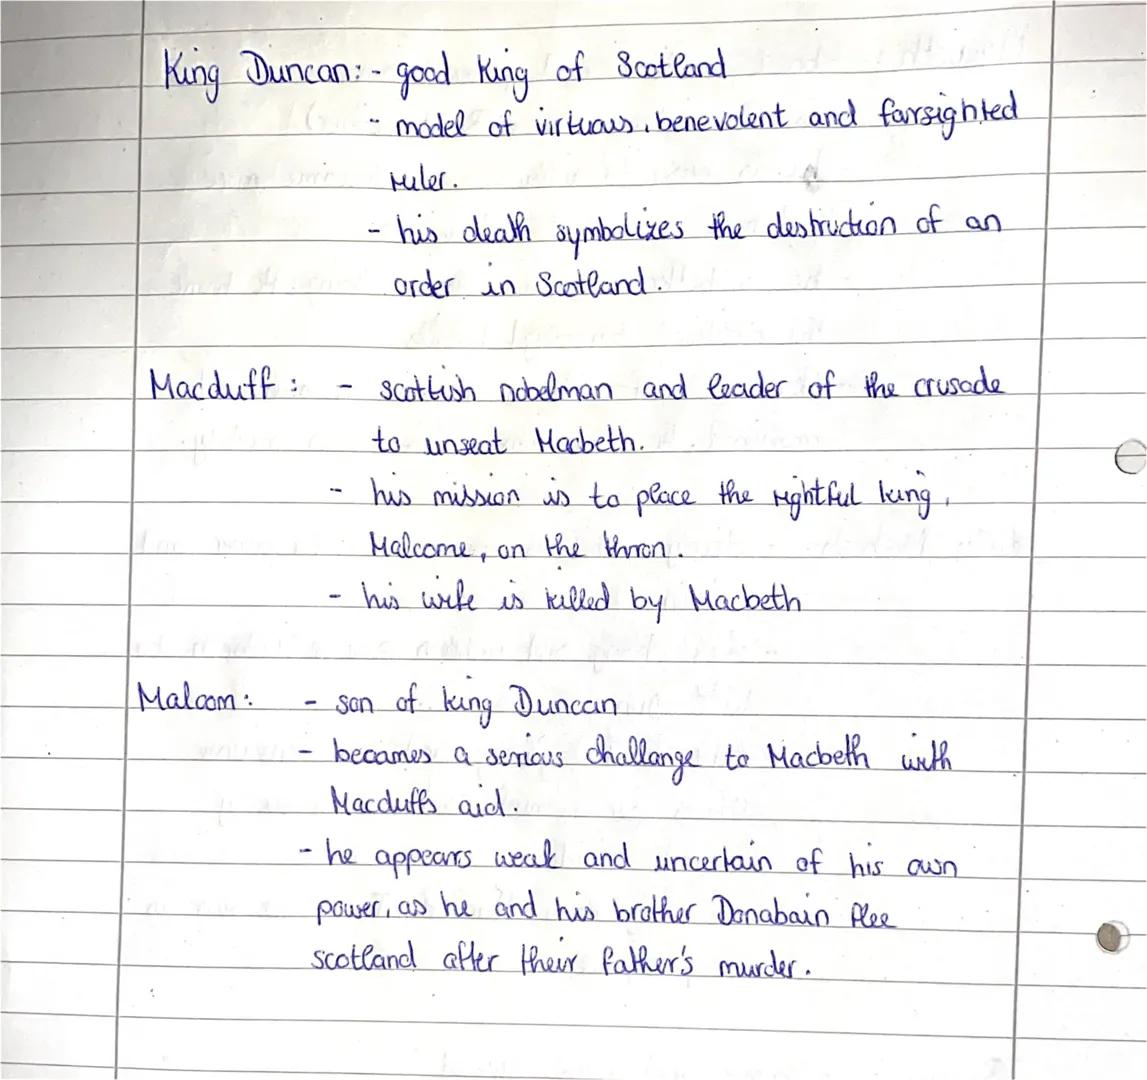 King Duncan: - good King of Scotland
- model of virtuous, benevolent and farsighted
ruler.
- his death symbolizes the destruction of an
order in Scotland.
Macduff: - scottish nobelman and leader of the crusade
to unseat Macbeth.
- his mission is to place the rightful king,
Malcome, on the thron.
- his wife is killed by Macbeth
Malcom: - son of king Duncan
- becomes a serious challange to Macbeth with
Macduffs aid.
- he appears weak and uncertain of his own
power, as he and his brother Donabain flee
scotland after their father's murder.